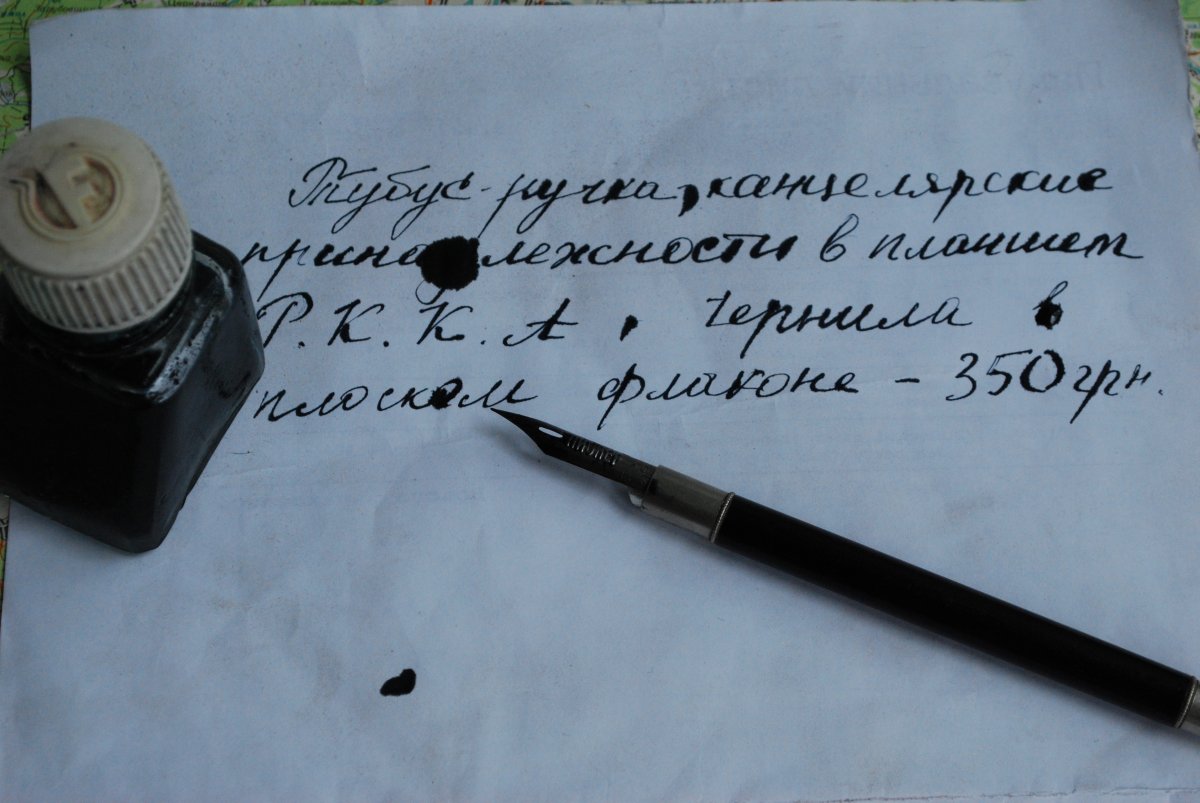 Тубус-ручка, канцелярские
принадлежности в планшет
Р. К. К. А , чернила в
плоском флаконе - 350 грн.